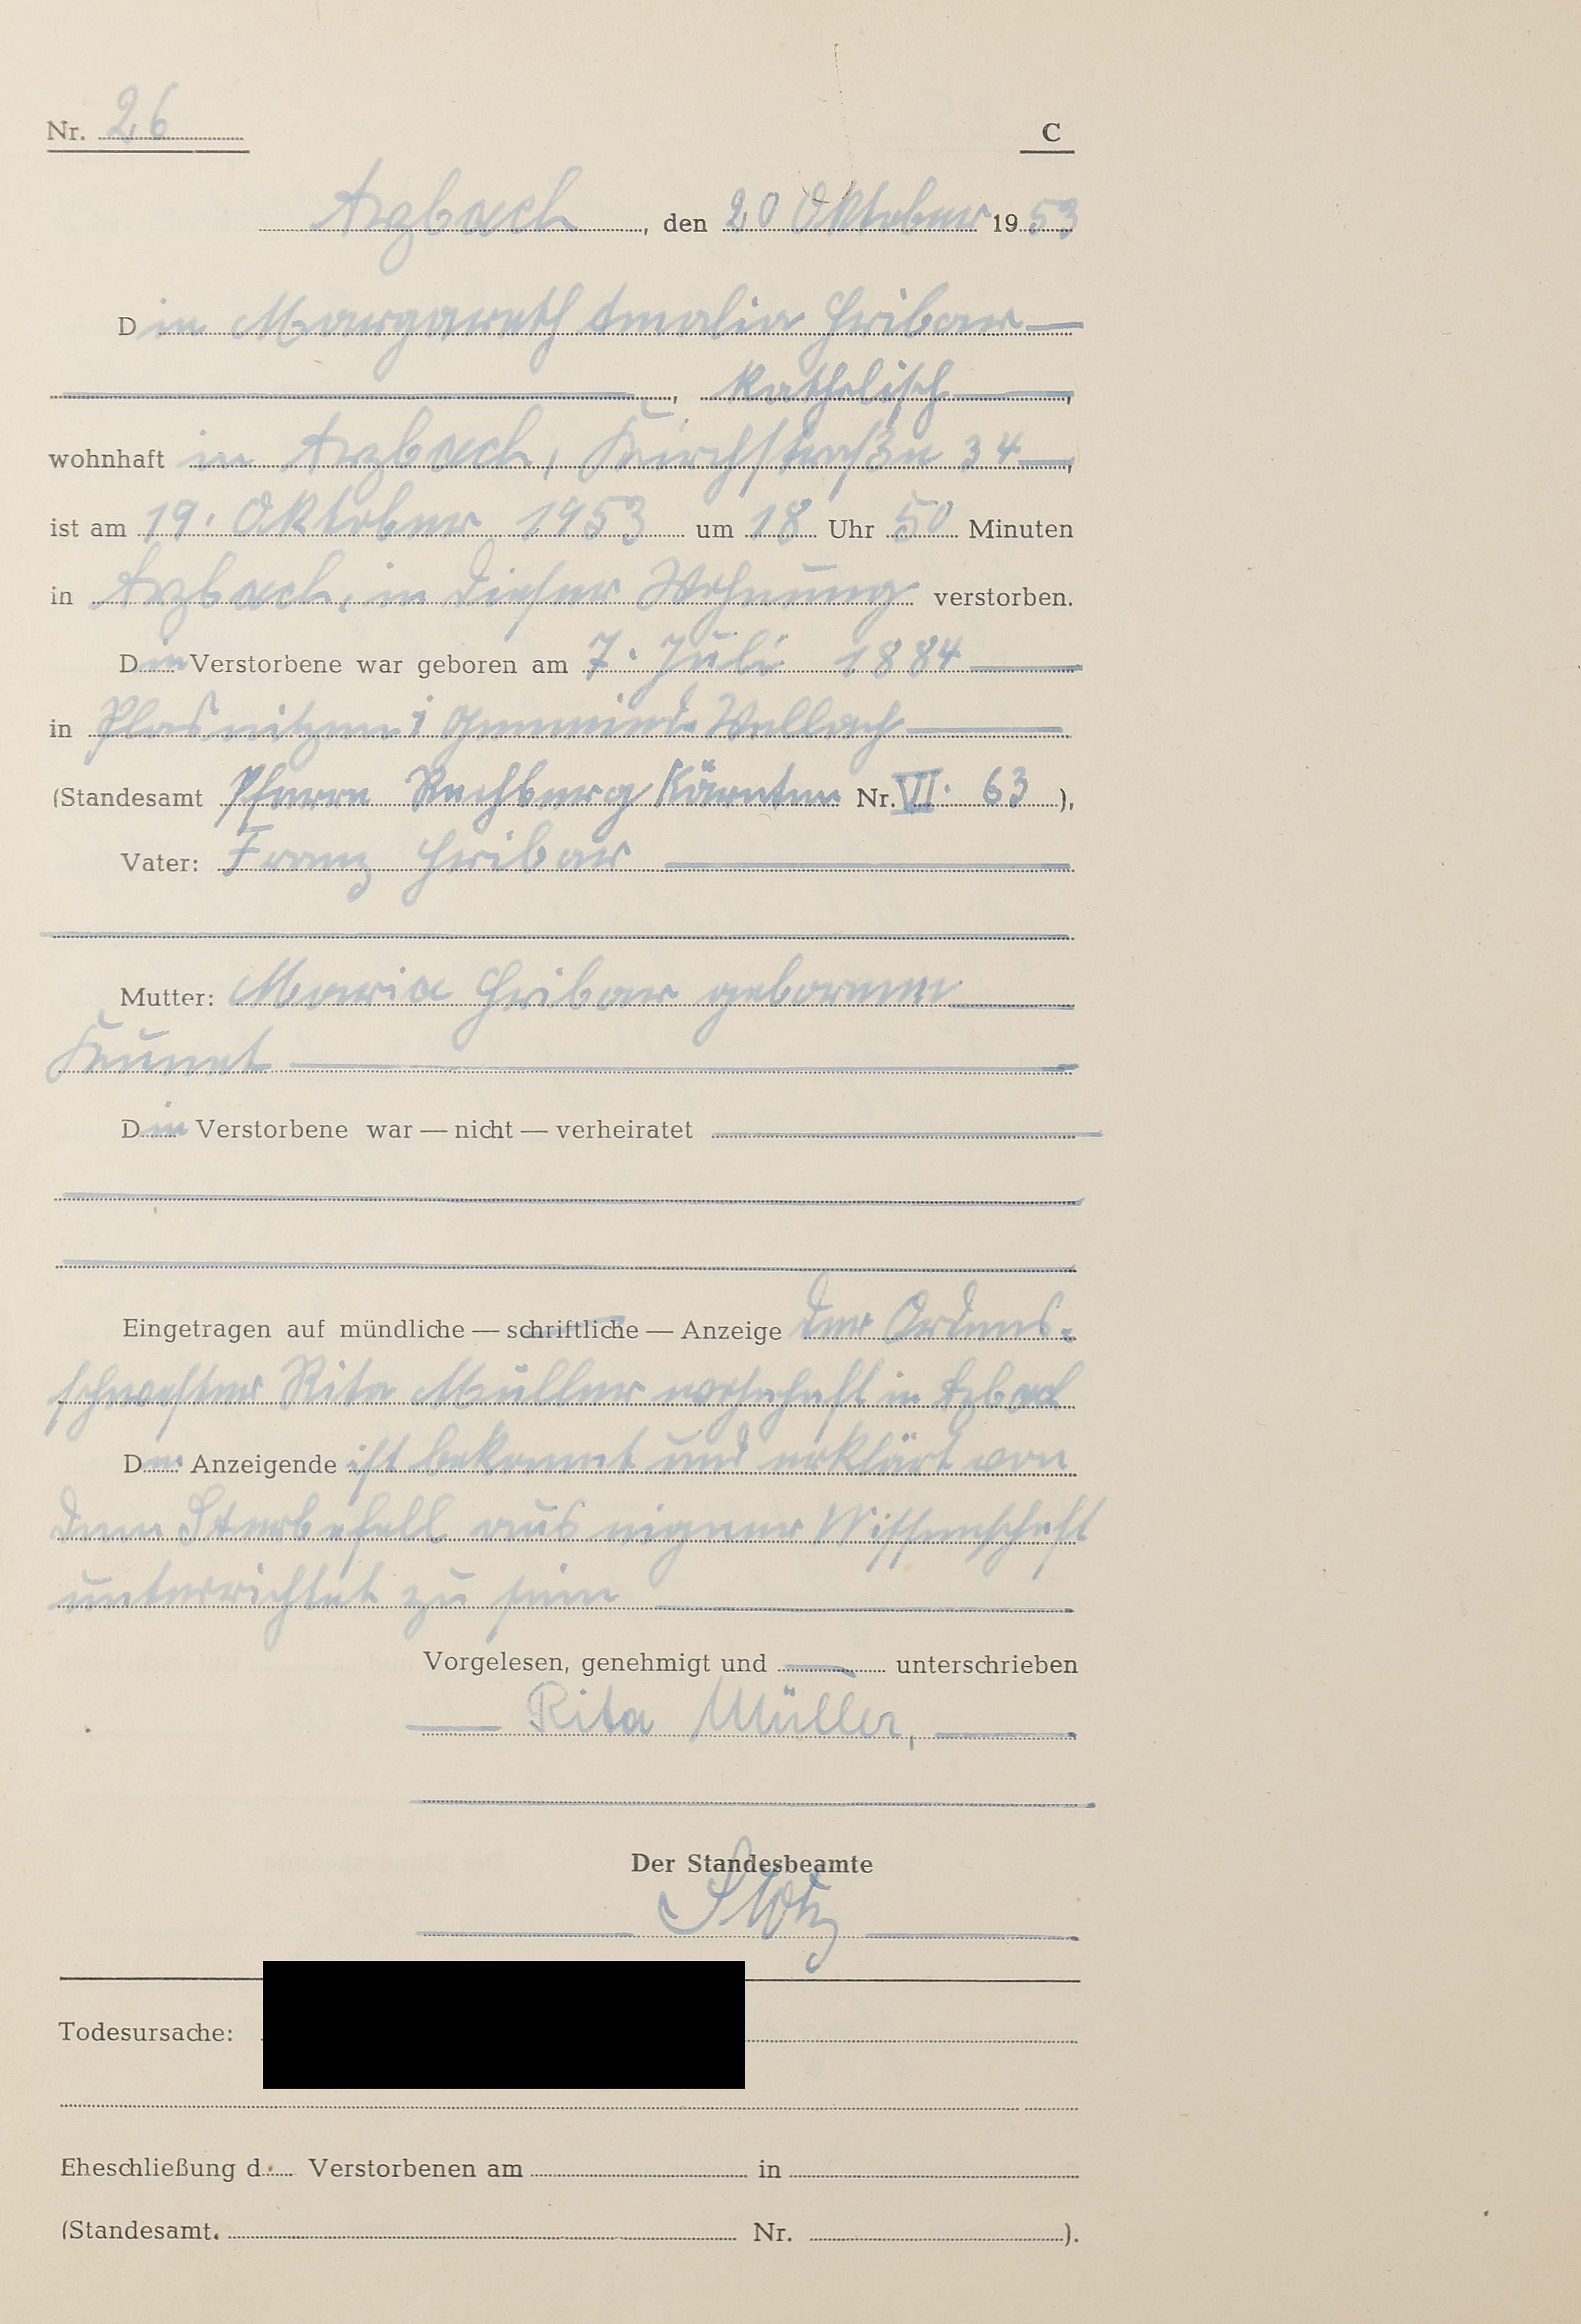 Nr. 26 C
Arzbach, den 20 Oktober 1953
Die Margareth Amalia Hribar
, katholisch,
wohnhaft in Arzbach, Kirchstraße 34,
ist am 19. Oktober 1953 um 18 Uhr 50 Minuten
in Arzbach, in dieser Wohnung verstorben.
Die Verstorbene war geboren am 7. Juli 1884
in Gemeinde Vellach
(Standesamt Pfarre Rechberg Kärnten Nr. VII. 63),
Vater: Franz Hribar
Mutter: Maria Hribar geborene
Die Verstorbene war — nicht — verheiratet
Eingetragen auf mündliche — schriftliche — Anzeige der Ordens-
schwester Rita Müller wohnhaft in Arzbach
Die Anzeigende ist bekannt und erklärt von
dem Sterbefall aus eigener Wissenschaft
unterrichtet zu sein
Vorgelesen, genehmigt und unterschrieben
Rita Müller,
Der Standesbeamte
Todesursache:
Eheschließung d. Verstorbenen am in
(Standesamt. Nr. ).